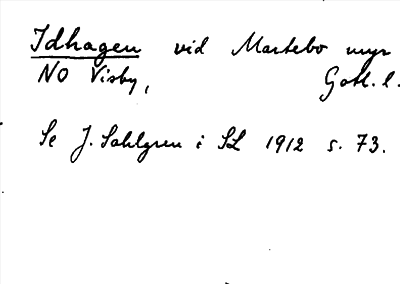 Idhagen vid Martebo myr
NO Visby, Gotl. l.
Se J. Sahlgren i SL 1912 s. 73.